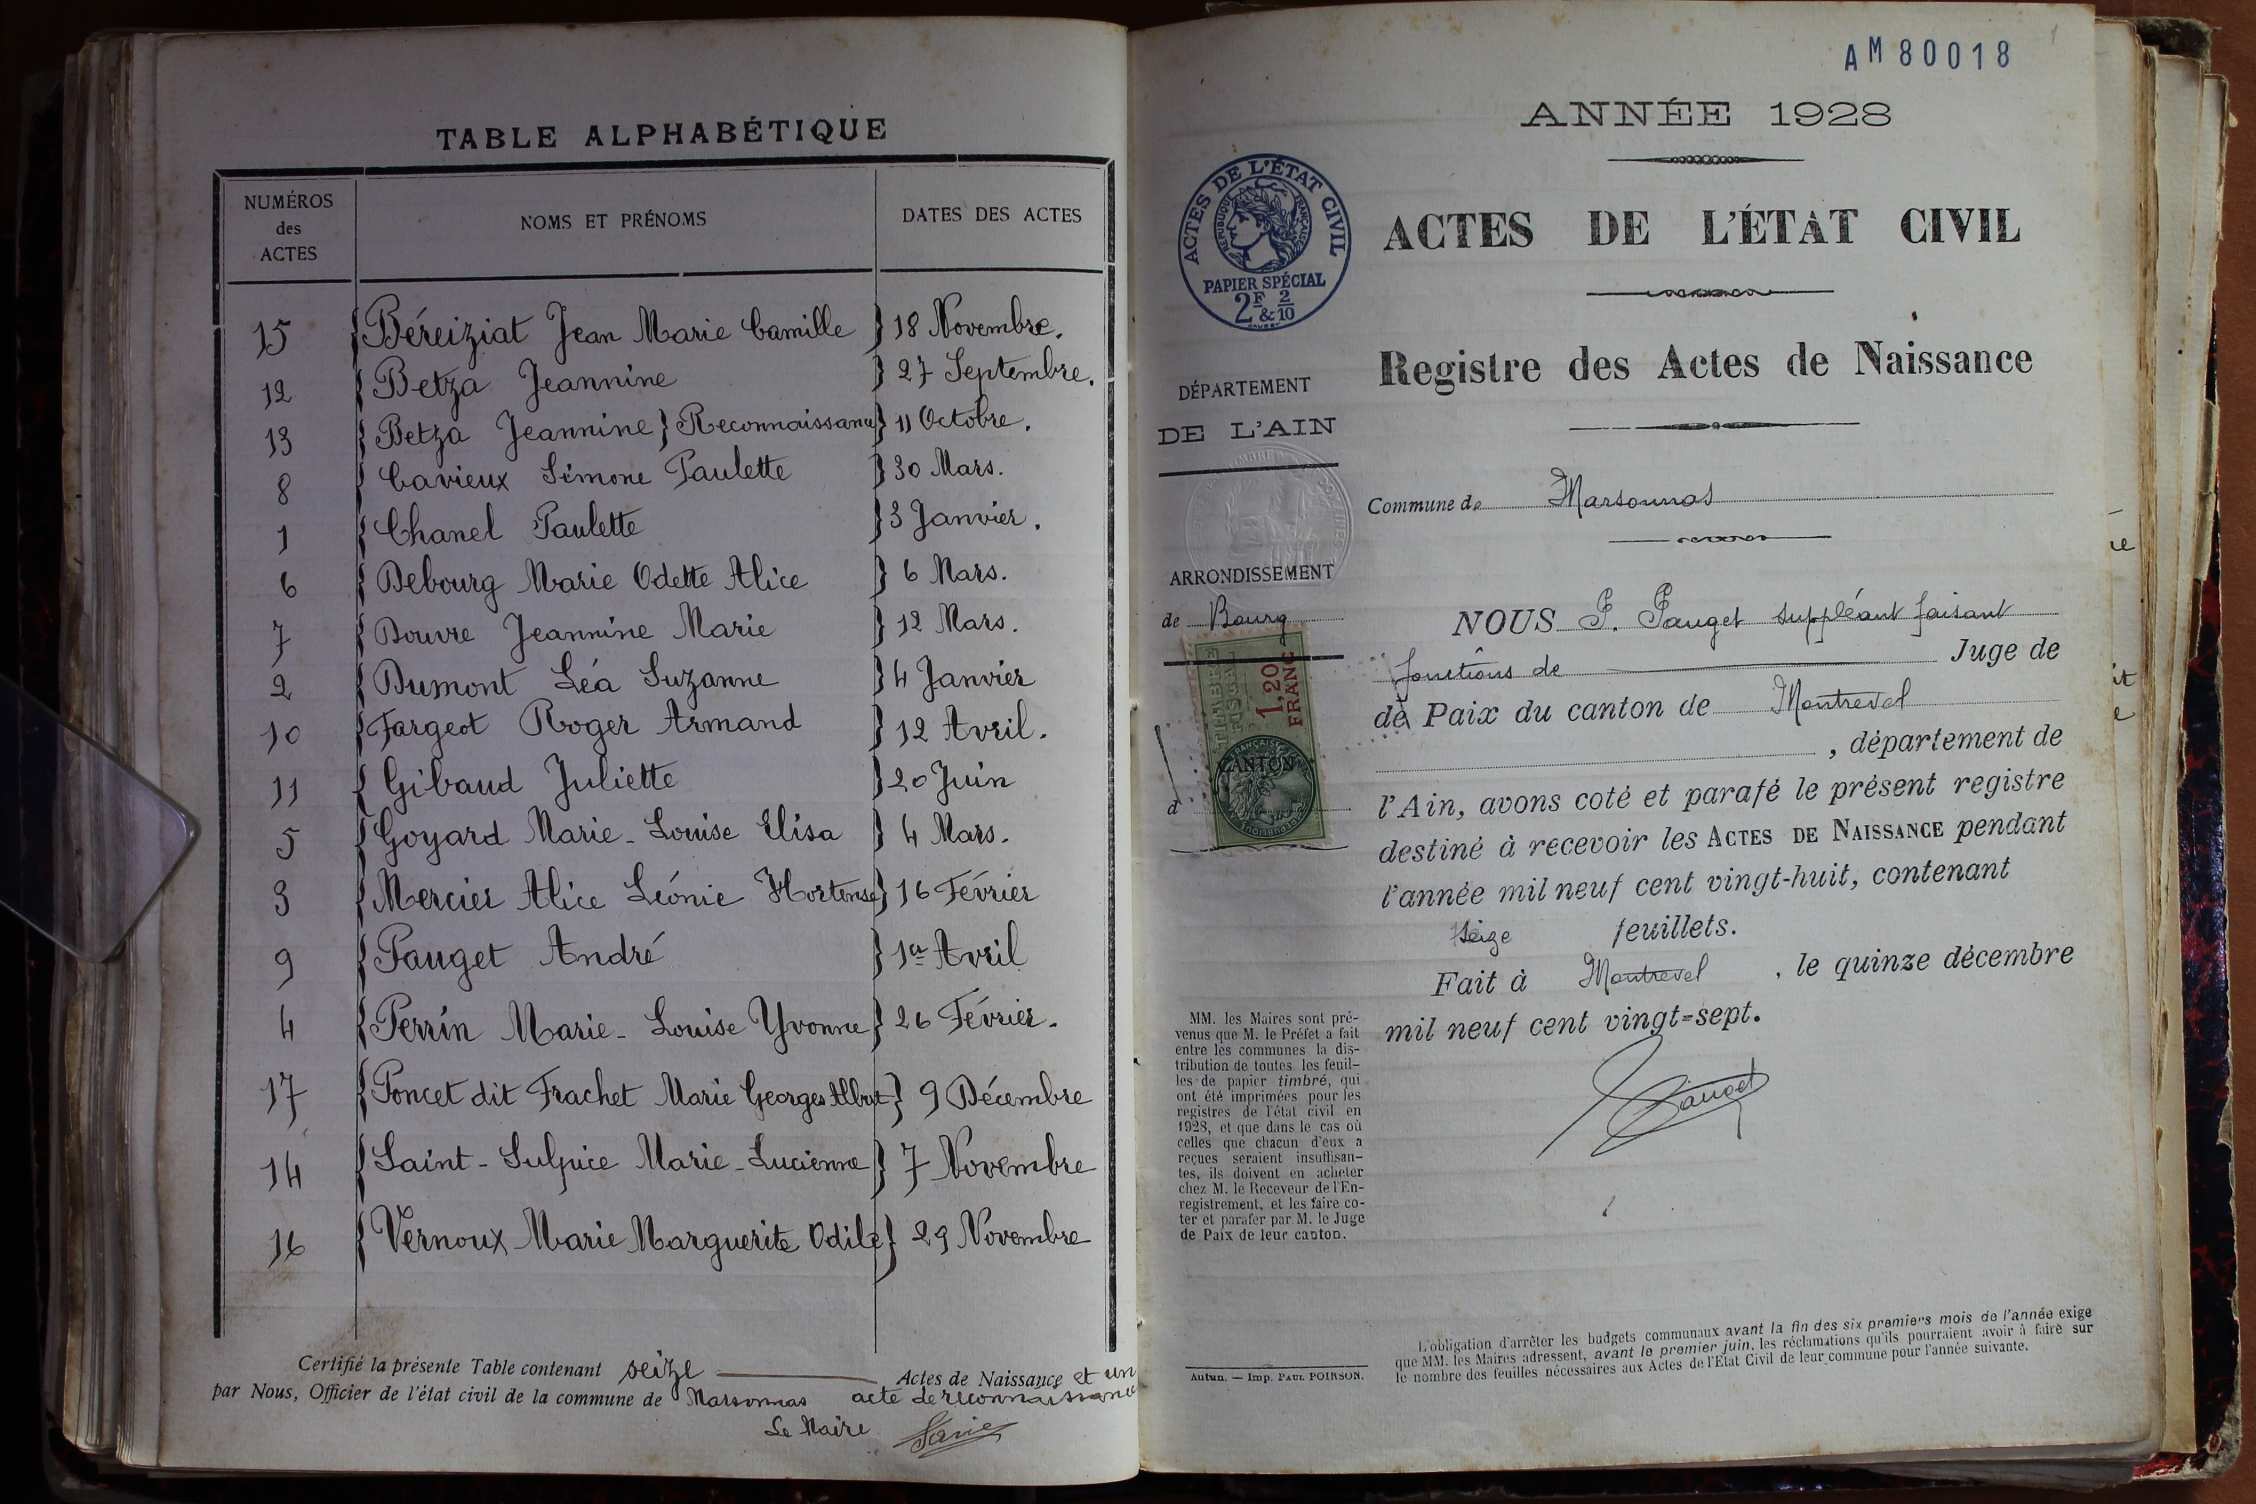 TABLE ALPHABÉTIQUE
NUMÉROS des ACTES NOMS ET PRÉNOMS DATES DES ACTES
15 Béreiziat Jean Marie Camille 18 Novembre.
12 Betza Jeannine 27 Septembre.
13 Betza Jeannine } Reconnaissance 11 Octobre.
8 Cavieux Simone Paulette 30 Mars.
1 Chanel Paulette 3 Janvier.
6 Debourg Marie Odette Alice 6 Mars.
7 Douvre Jeannine Marie 12 Mars.
2 Dumont Léa Suzanne 4 Janvier
10 Fargeot Roger Armand 12 Avril.
11 Gibaud Juliette 20 Juin
5 Goyard Marie-Louise Elisa 4 Mars.
3 Mercier Alice Léonie Hortense 16 Février
9 Pauget André 1er Avril
4 Perrin Marie-Louise Yvonne 26 Février.
17 Poncet dit Frachet Marie Georges Albert 9 Décembre
14 Saint-Sulpice Marie-Lucienne 7 Novembre
16 Vernoux Marie Marguerite Odile 29 Novembre
Certifié la présente Table contenant seize Actes de Naissance et un
par Nous, Officier de l'état civil de la commune de Marsonnas acte de reconnaissance
Le Maire
AM80018
1
ANNÉE 1928
ACTES DE L'ÉTAT CIVIL
RÉPUBLIQUE FRANÇAISE
PAPIER SPÉCIAL
2F & 2/10
ACTES DE L'ÉTAT CIVIL
Registre des Actes de Naissance
DÉPARTEMENT
DE L'AIN
Commune de Marsonnas
ARRONDISSEMENT
de Bourg
TIMBRE
FISCAL
1,20
FRANC
CANTON
d
NOUS P. Pauget suppléant faisant
fonctions de Juge de
de Paix du canton de Montrevel
, département de
l'Ain, avons coté et parafé le présent registre
destiné à recevoir les ACTES DE NAISSANCE pendant
l'année mil neuf cent vingt-huit, contenant
seize feuillets.
Fait à Montrevel, le quinze décembre
mil neuf cent vingt=sept.
Pauget
MM. les Maires sont pré-
venus que M. le Préfet a fait
entre les communes la dis-
tribution de toutes les feuil-
les de papier timbré, qui
ont été imprimées pour les
registres de l'état civil en
1928, et que dans le cas où
celles que chacun d'eux a
reçues seraient insuffisan-
tes, ils doivent en acheter
chez M. le Receveur de l'En-
registrement, et les faire co-
ter et parafer par M. le Juge
de Paix de leur canton.
Autun. — Imp. PAUL POIRSON.
L'obligation d'arrêter les budgets communaux avant la fin des six premiers mois de l'année exige
que MM. les Maires adressent, avant le premier juin, les réclamations qu'ils pourraient avoir à faire sur
le nombre des feuilles nécessaires aux Actes de l'Etat Civil de leur commune pour l'année suivante.